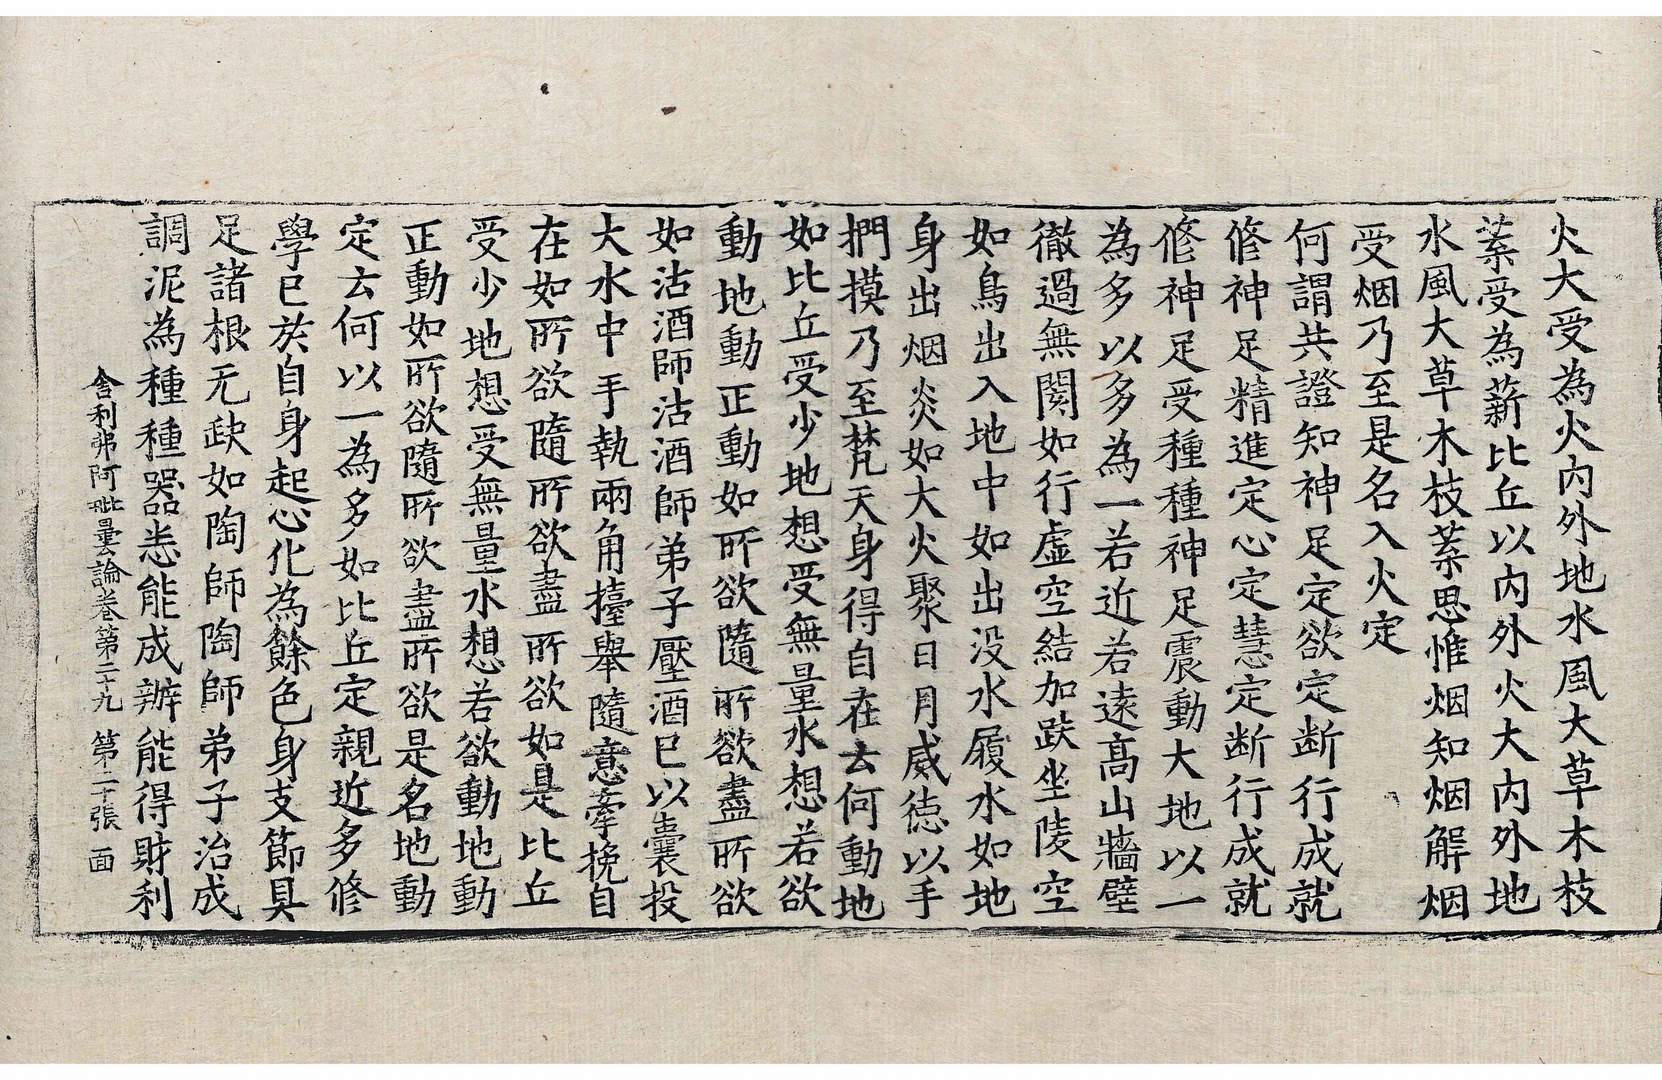 火大受為火內外地水風大草木枝
葉受為薪比丘以內外火大內外地
水風大草木枝葉思惟烟知烟解烟
受烟乃至是名入火定
何謂共證知神足定欲定断行成就
修神足精進定心定慧定断行成就
修神足受種種神足震動大地以一
為多以多為一若近若遠高山牆壁
徹過無閡如行虛空結加趺坐陵空
如鳥出入地中如出没水履水如地
身出烟炎如大火聚日月威德以手
捫摸乃至梵天身得自在云何動地
如比丘受少地想受無量水想若欲
動地動正動如所欲隨所欲盡所欲
如沽酒師沽酒師弟子壓酒已以囊投
大水中手執兩角擡舉隨意牽挽自
在如所欲隨所欲盡所欲如是比丘
受少地想受無量水想若欲動地動
正動如所欲隨所欲盡所欲是名地動
定云何以一為多如比丘定親近多修
學已於自身起心化為餘色身支節具
足諸根无缺如陶師陶師弟子治成
調泥為種種器悉能成辦能得財利
舍利弗阿毗曇論卷第二十九 第二十張 面